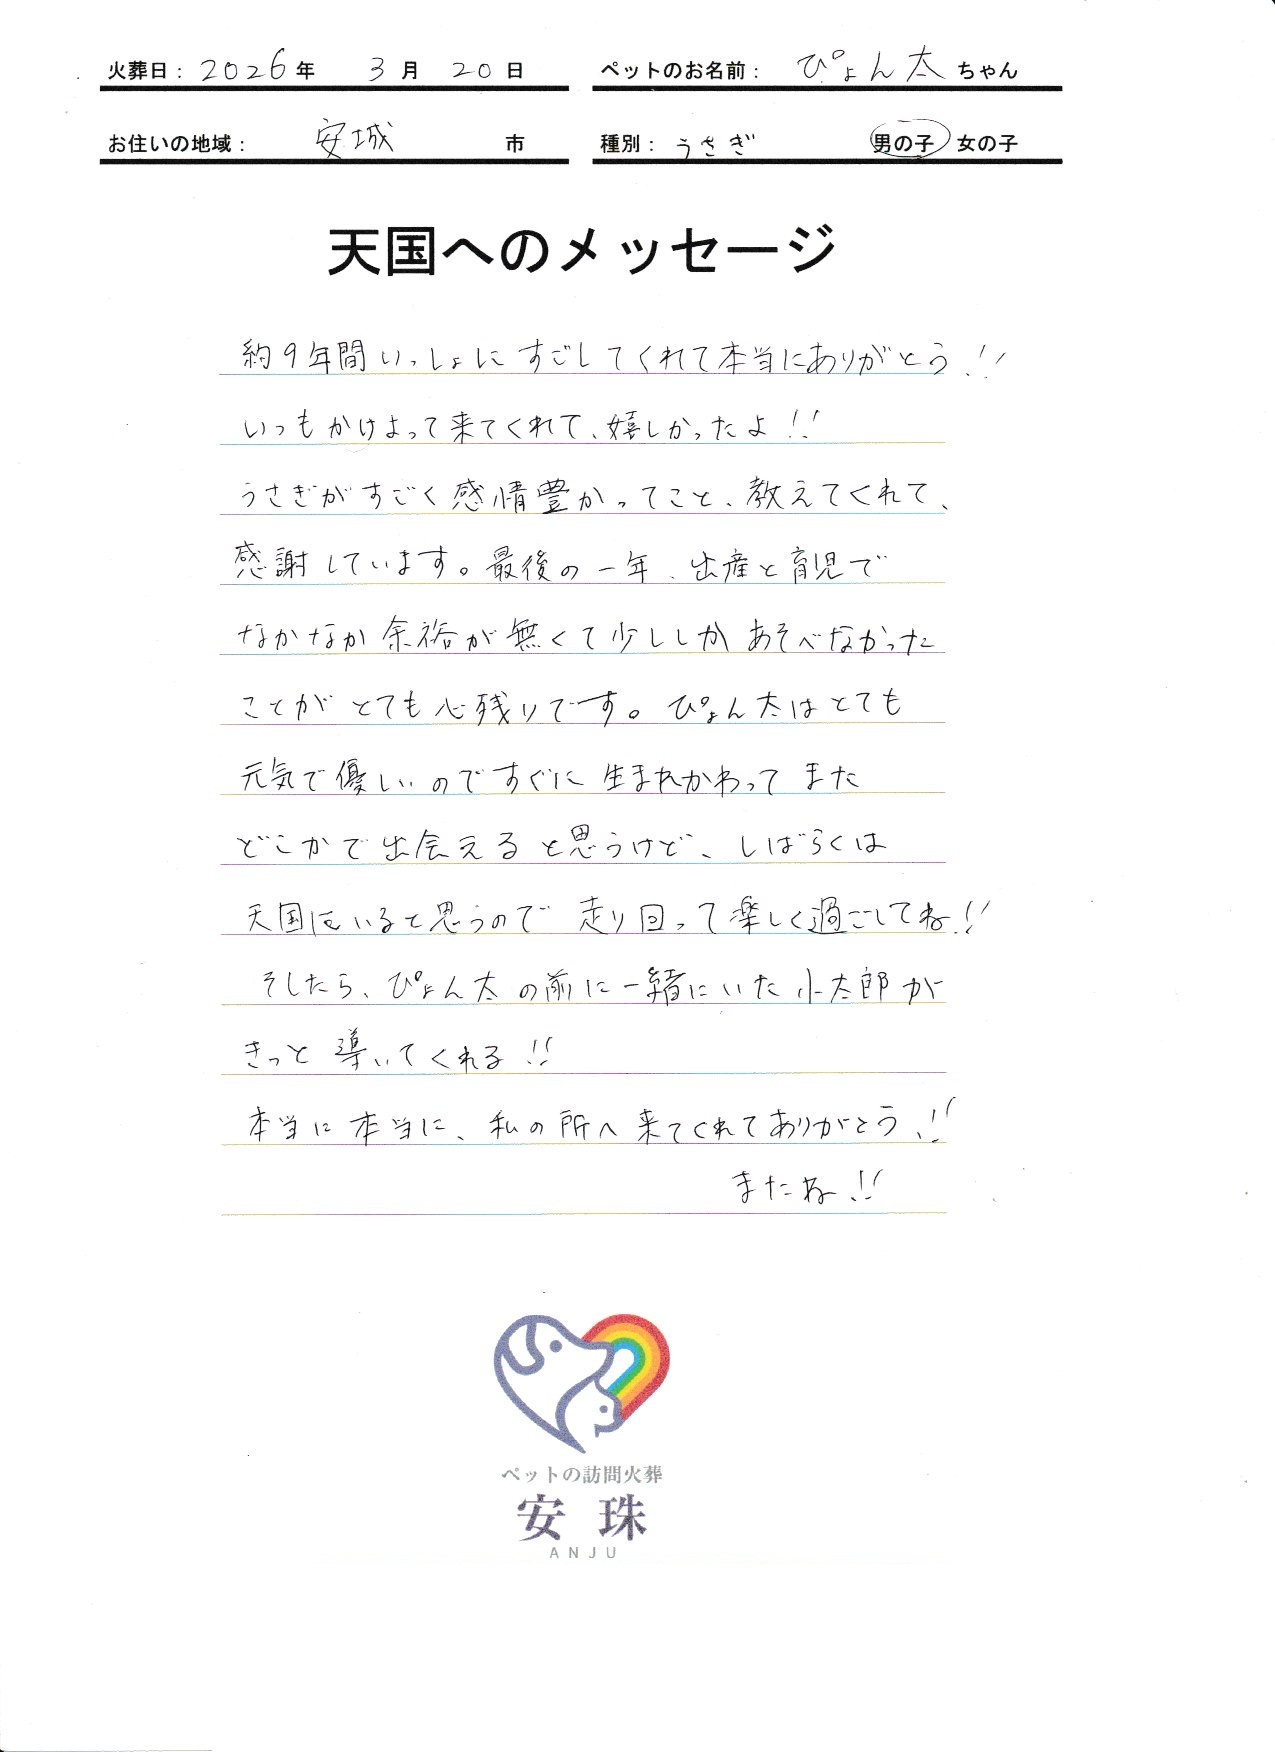 火葬日：2026年 3月 20日
ペットのお名前： ぴょん太 ちゃん
お住いの地域： 安城 市
種別： うさぎ 男の子 女の子
天国へのメッセージ
約9年間いっしょにすごしてくれて本当にありがとう!!
いつもかけよって来てくれて、嬉しかったよ!!
うさぎがすごく感情豊かってこと、教えてくれて、
感謝しています。最後の一年、出産と育児で
なかなか余裕が無くて少ししかあそべなかった
ことがとても心残りです。ぴょん太はとても
元気で優しいのですぐに生まれかわってまた
どこかで出会えると思うけど、しばらくは
天国にいると思うので走り回って楽しく過ごしてね!!
そしたら、ぴょん太の前に一緒にいた小太郎が
きっと導いてくれる!!
本当に本当に、私の所へ来てくれてありがとう!!
またね!!
ペットの訪問火葬
安珠
ANJU